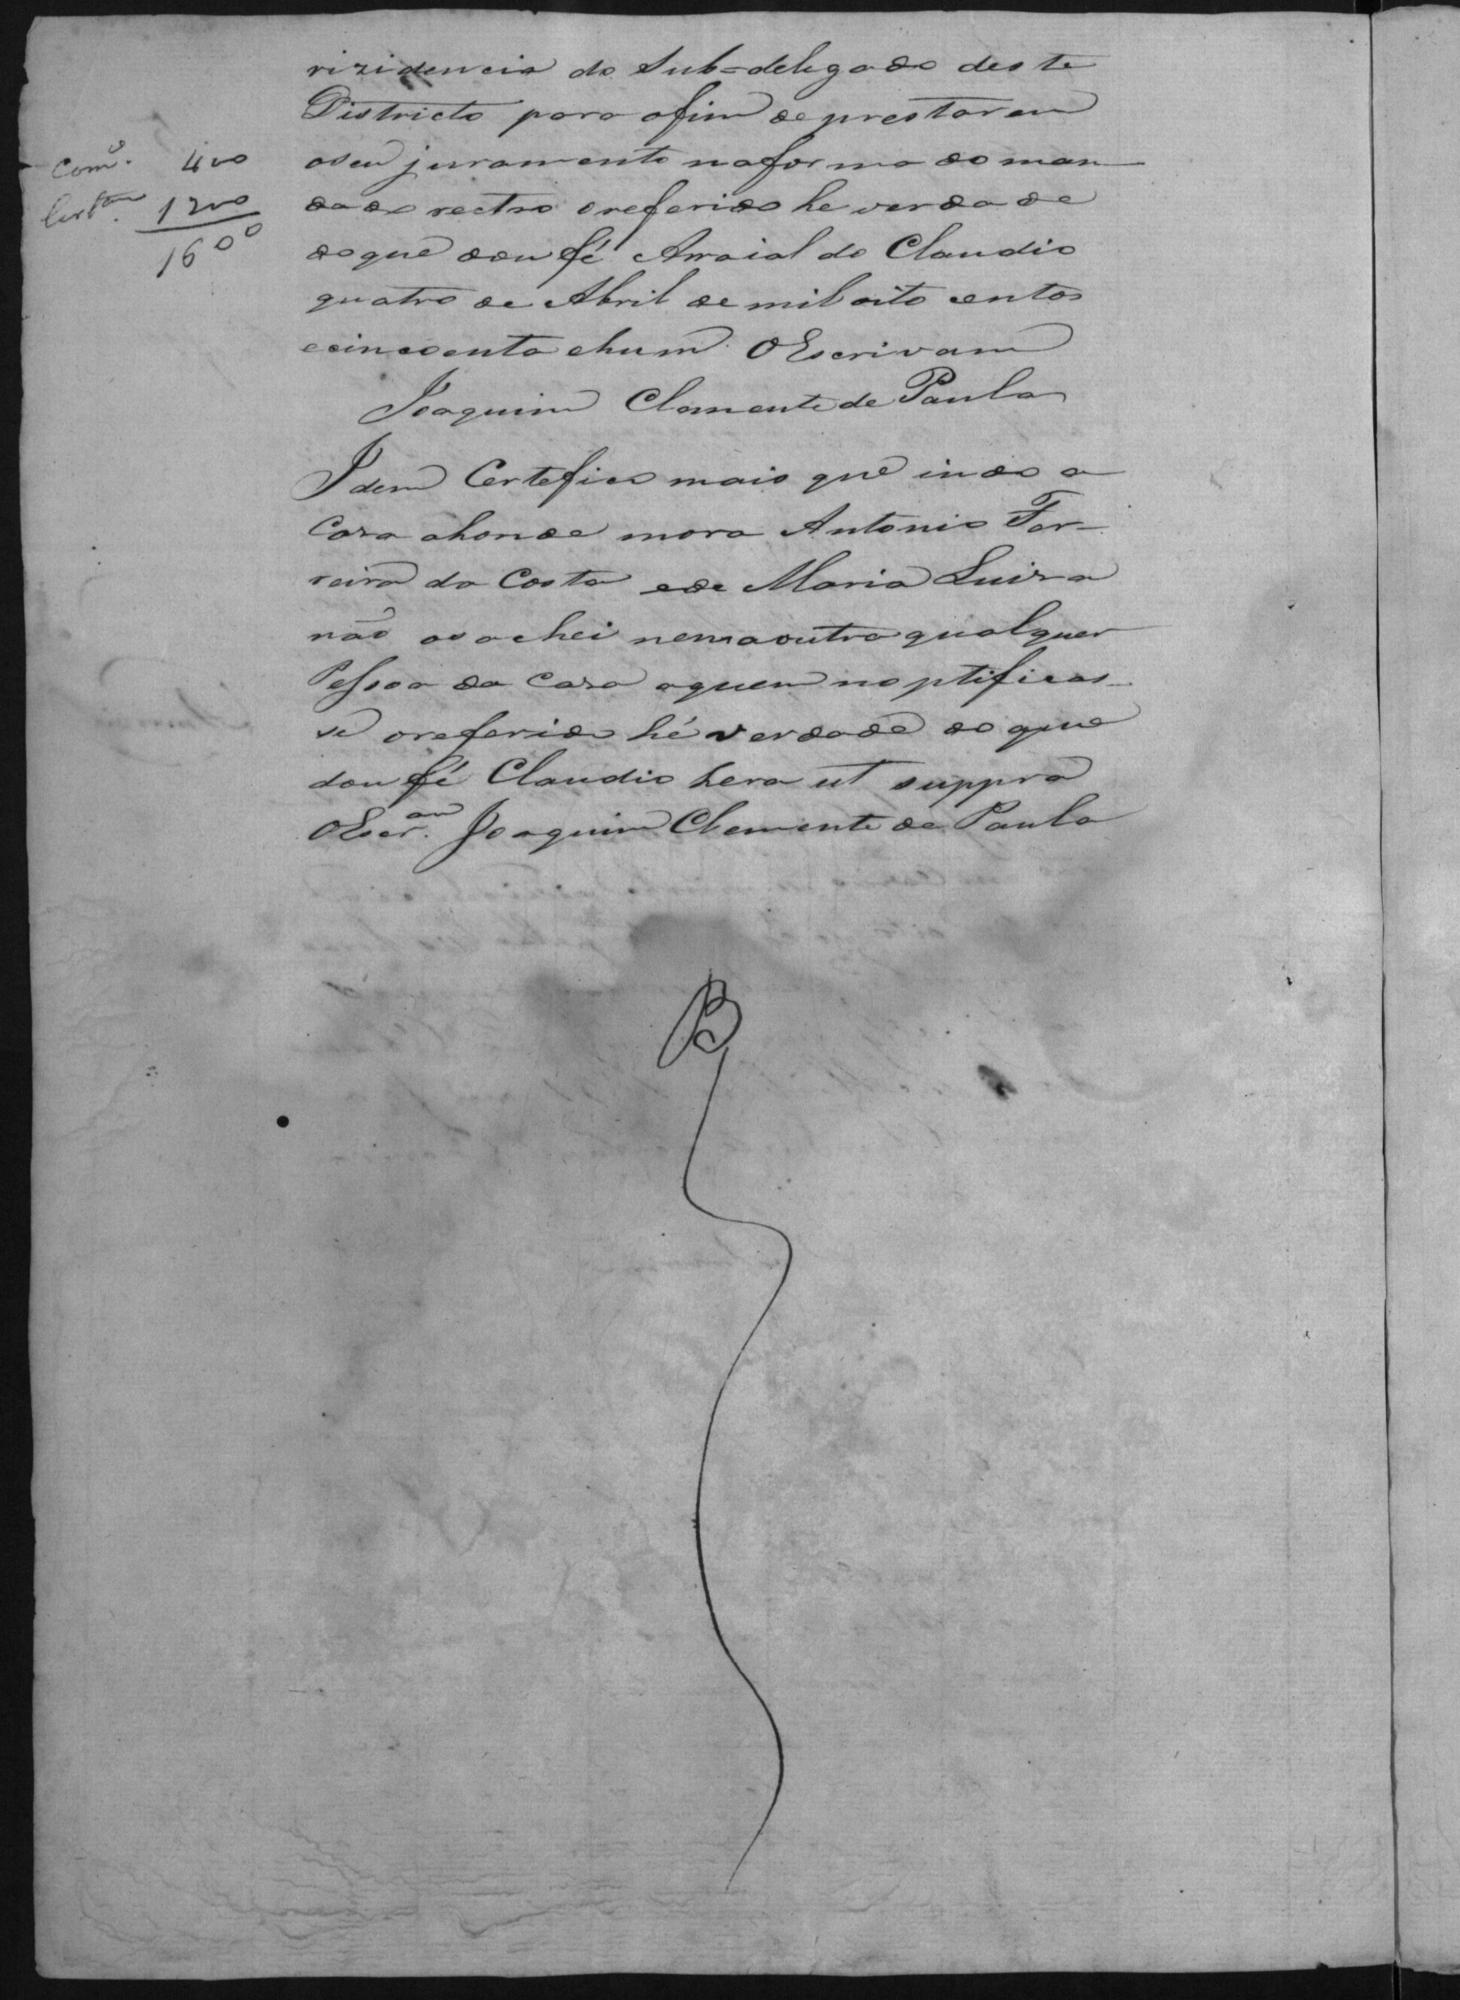 rizidencia do Sub=delegado deste
Districto para afim de prestarem
oseu juramento naforma do man
dado rectro oreferido he verdade
doque dou fé Arraial do Claudio
quatro de Abril de mil oito centos
ecincoenta ehum O Escrivam
Joaquim Clemente de Paula
Com.º 400
Cert.am 1200
1600
Idem Certefico mais que indo a
Caza ahonde mora Antonio Fer-
reira da Costa ede Maria Luiza
não os achei nem a outra qualquer
Pessoa da Caza aquem noptificas-
se oreferido hé verdade do que
dou fé Claudio hera ut suppra
O Escr.am Joaquim Clemente de Paula
B